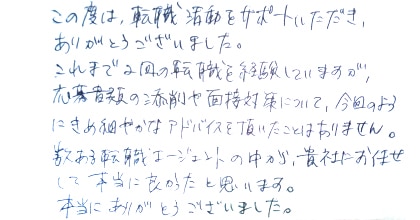 この度は、転職活動をサポートいただき、
ありがとうございました。
これまで2回の転職を経験していますが、
応募書類の添削や面接対策について、今回のよう
にきめ細やかなアドバイスを頂いたことはありません。
数ある転職エージェントの中から、貴社にお任せ
して本当に良かったと思います。
本当にありがとうございました。